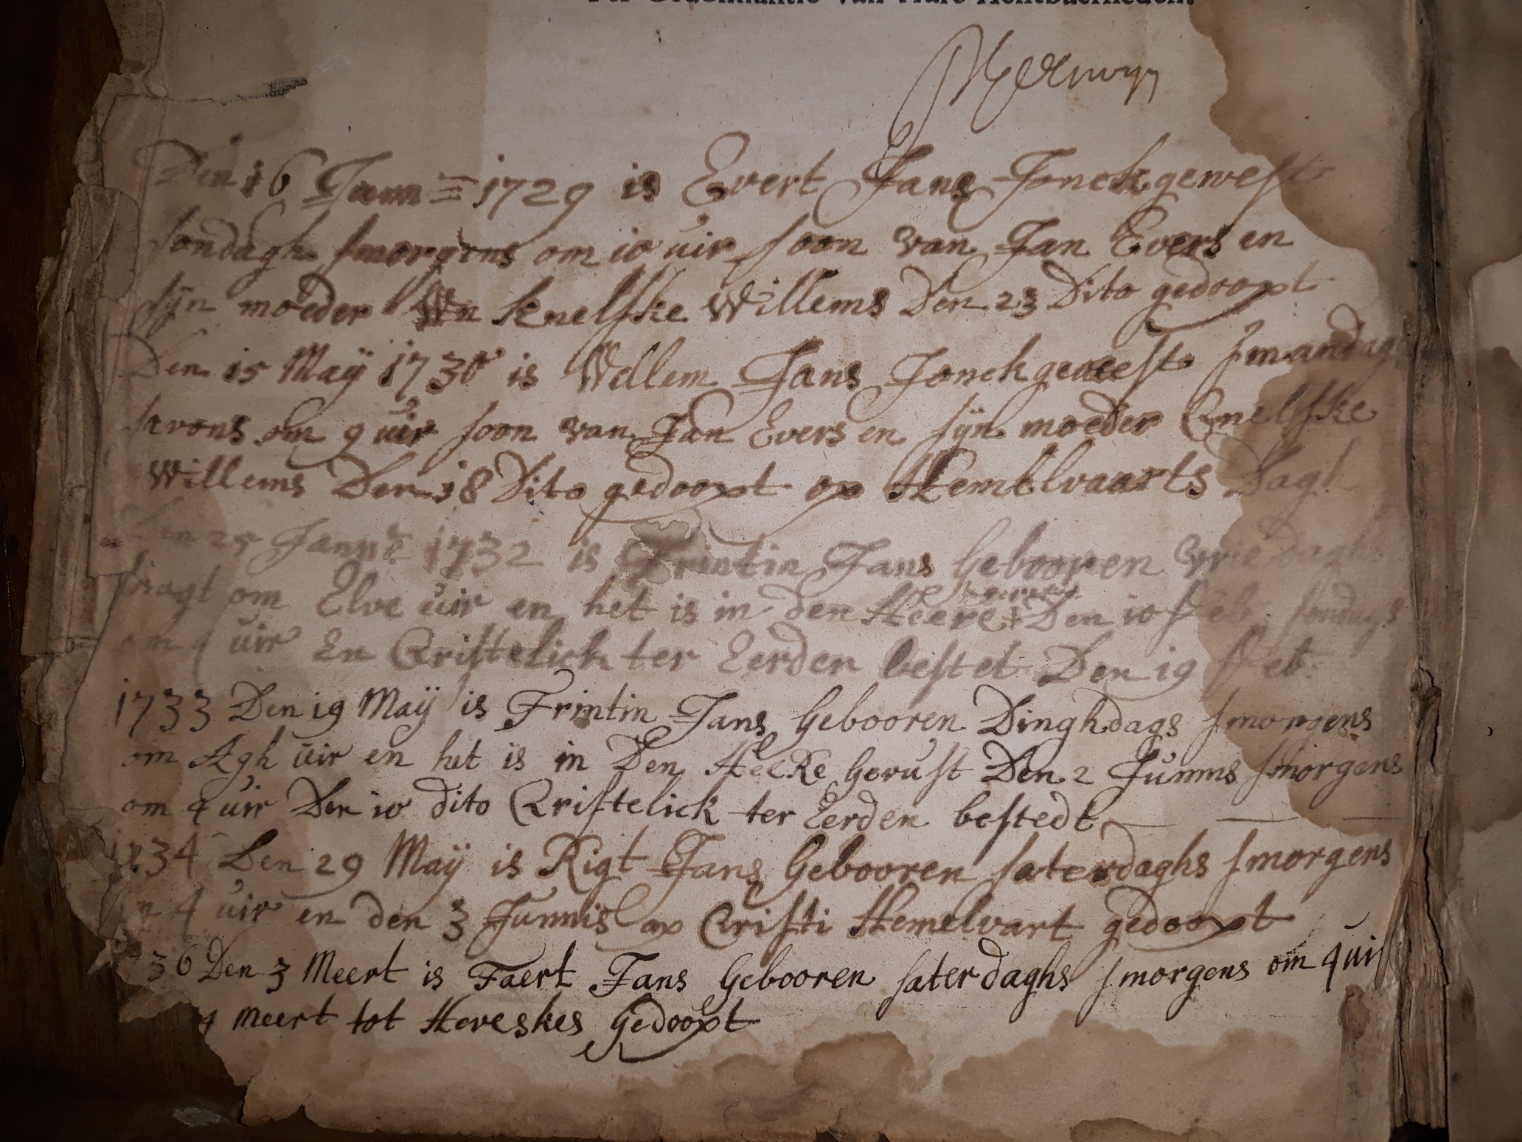 Per Ordonnantie van Hare Achtbaerheden.
Den 16 Jann 1729 is Evert Jans Jonck gewest
sondagh smorgens om 10 uir soon van Jan Evers en
sijn moeder Knelske Willems Den 23 Dito gedoopt
Den 15 Maÿ 1730 is Willem Jans Jonck geweest smandags
savons om 9 uir soon van Jan Evers en sijn moeder Cnelske
Willems Den 18 Dito gedoopt op Hemelvaarts Dagh
Den 25 Jann 1732 is Frintin Jans Gebooren Vriedaghs
om Elve uir en het is in den Heere gerust Den 10 Feb sondags
om 4 uir En Cristelick ter Eerden bestet Den 19 Feb
1733 Den 19 Maÿ is Frintin Jans Gebooren Dinghdags smorgens
om Agh uir en het is in Den HeeRe Gerust Den 2 Junnis smorgens
om 4 uir Den 10 dito Cristelick ter Eerden bestedt
1734 Den 29 Maÿ is Rigt Jans Gebooren saterdaghs smorgens
4 uir en den 3 Junnis op Cristi Hemelvart gedoopt
1736 Den 3 Meert is Faert Jans Gebooren saterdaghs smorgens om 4 uir
4 Meert tot Heveskes Gedoopt